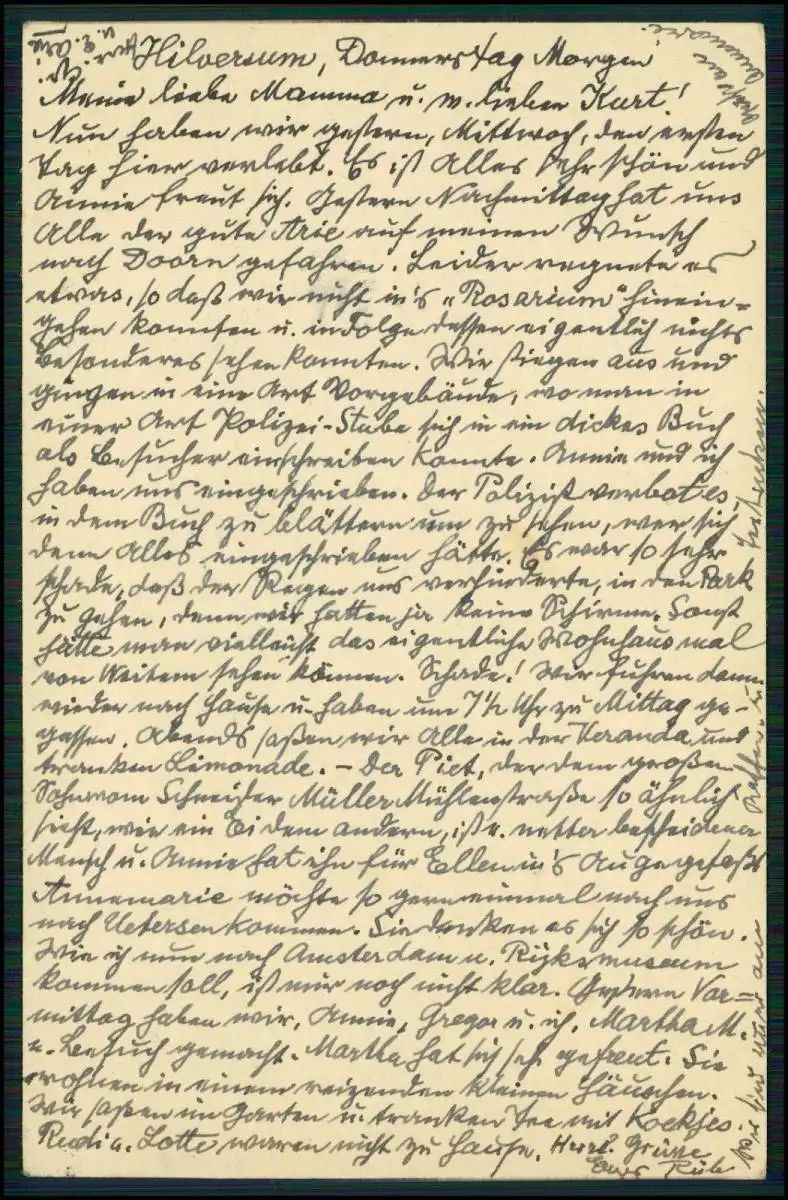 Hilversum, Donnerstag Morgen
Meine liebe Mamma u. m. lieber Kurt!
Nun haben wir gestern, Mittwoch, den ersten
Tag hier verlebt. Es ist Alles sehr schön und
Annie freut sich. Gestern Nachmittag hat uns
Alle der gute Arie auf meinen Wunsch
nach Doorn gefahren. Leider regnete es
etwas, so daß wir nicht in's "Rosarium" hinein-
gehen konnten u. in Folge dessen eigentlich nichts
besonderes sehen konnten. Wir stiegen aus und
gingen in eine Art Vorgebäude, wo man in
einer Art Polizei-Stube sich in ein dickes Buch
als Besucher einschreiben konnte. Annie und ich
haben uns eingeschrieben. Der Polizist verbot es
in dem Buch zu blättern um zu sehen, wer sich
denn Alles eingeschrieben hätte. Es war so sehr
schade, daß der Regen uns verhinderte, in den Park
zu gehen, denn wir hatten ja keine Schirme. Sonst
hätte man vielleicht das eigentliche Wohnhaus mal
von Weitem sehen können. Schade! Wir fuhren dann
wieder nach Hause u. haben um 7½ Uhr zu Mittag ge-
gessen. Abends saßen wir Alle in der Veranda und
tranken Limonade. – Der Piet, der dem großen
Sohn vom Schneider Müller Mühlenstraße so ähnlich
sieht, wie ein Ei dem andern, ist e. netter bescheidener
Mensch u. Annie hat ihn für Ellen in's Auge gefaßt
Annemarie möchte so gern einmal nach uns
nach Uetersen kommen. Sie denken es sich so schön.
Wie ich nun nach Amsterdam u. Rijksmuseum
kommen soll, ist mir noch nicht klar. Gestern Vor-
mittag haben wir, Annie, Gregor u. ich, Martha M.
e. Besuch gemacht. Martha hat sich sehr gefreut. Sie
wohnen in einem reizenden kleinen Häuschen.
Wir saßen im Garten u. tranken Tee mit Koekjes.
Rudi u. Lotte waren nicht zu Hause. Herzl. Grüsse